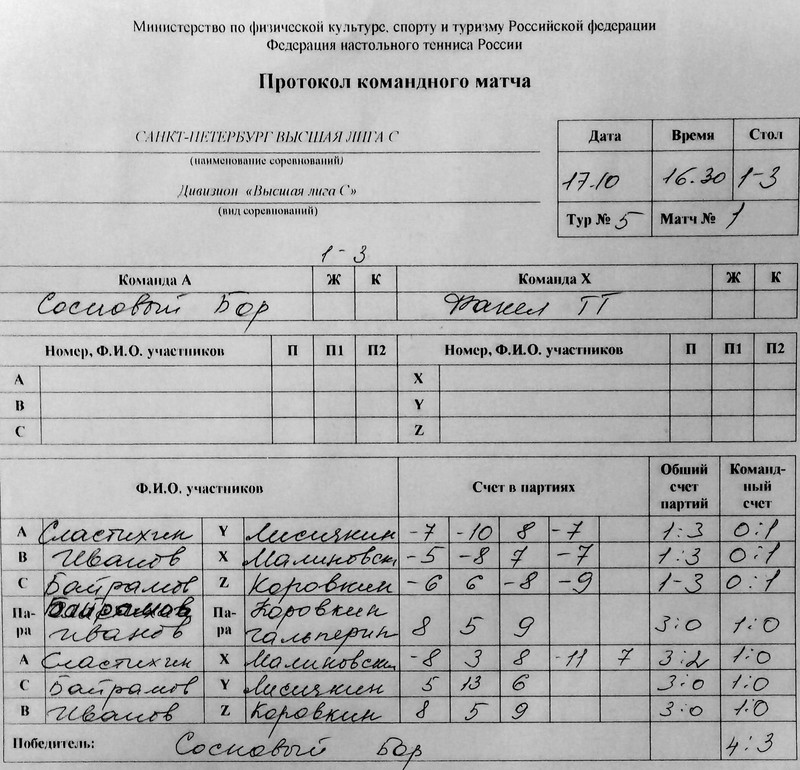 Министерство по физической культуре, спорту и туризму Российской федерации
Федерация настольного тенниса России
Протокол командного матча
САНКТ-ПЕТЕРБУРГ ВЫСШАЯ ЛИГА С
(наименование соревнований)
Дивизион «Высшая лига С»
(вид соревнований)
Дата Время Стол
17.10 16.30 1-3
Тур № 5 Матч № 1
1-3
Команда А Ж К Команда Х Ж К
Сосновый Бор Факел ТТ
Номер, Ф.И.О. участников П П1 П2 Номер, Ф.И.О. участников П П1 П2
А X
В Y
С Z
Ф.И.О. участников Счет в партиях Общий счет партий Команд-ный счет
А Сластихин Y Лисичкин -7 -10 8 -7 1:3 0:1
В Иванов X Малиновски -5 -8 7 -7 1:3 0:1
С Байрамов Z Коровкин -6 6 -8 -9 1-3 0:1
Па-ра Байрамов Па-ра Коровкин
Иванов Гальперин 8 5 9 3:0 1:0
А Сластихин X Малиновски -8 3 8 -11 7 3:2 1:0
С Байрамов Y Лисичкин 5 13 6 3:0 1:0
В Иванов Z Коровкин 8 5 9 3:0 1:0
Победитель: Сосновый Бор 4:3